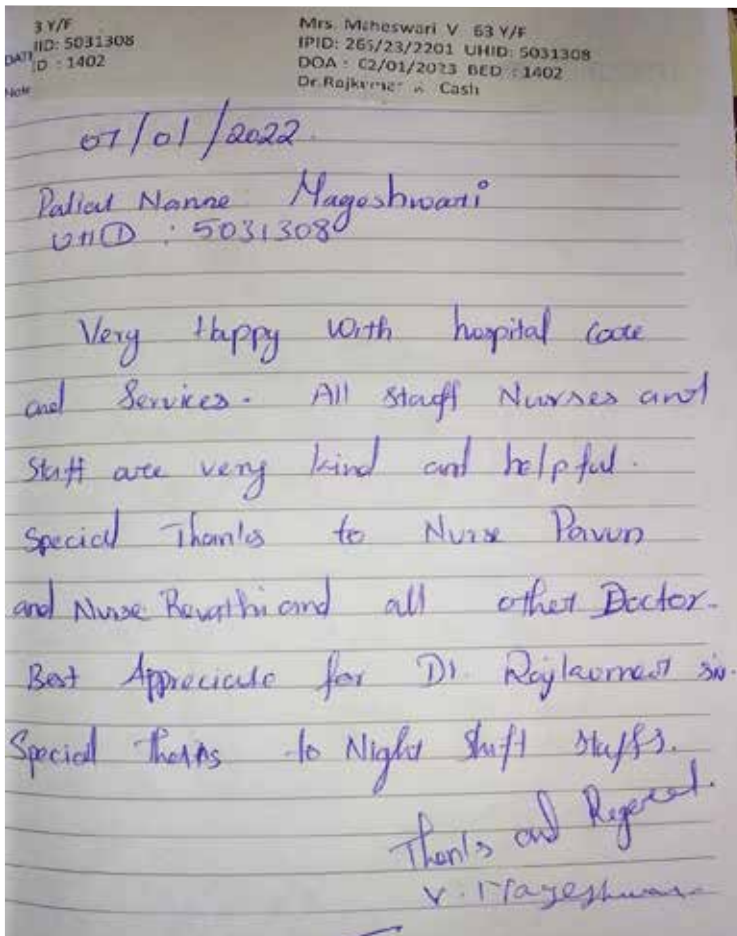 3 Y/F
IID: 5031308
DATE
D : 1402
Note
Mrs. Maheswari V 63 Y/F
IPID: 265/23/2201 UHID: 5031308
DOA : 02/01/2023 BED : 1402
Dr.Rajkumar Cash
07/01/2022.
Patient Name : Mageshwari
UHID : 5031308
Very Happy with hospital care
and Services. All staff Nurses and
Staff are very kind and helpful.
Special Thanks to Nurse Pavun
and Nurse Revathi and all other Doctor.
Best Appreciate for Dr. Rajkumar sir.
Special Thanks to Night Shift staffs.
Thanks and Regards.
V. Mageshwari